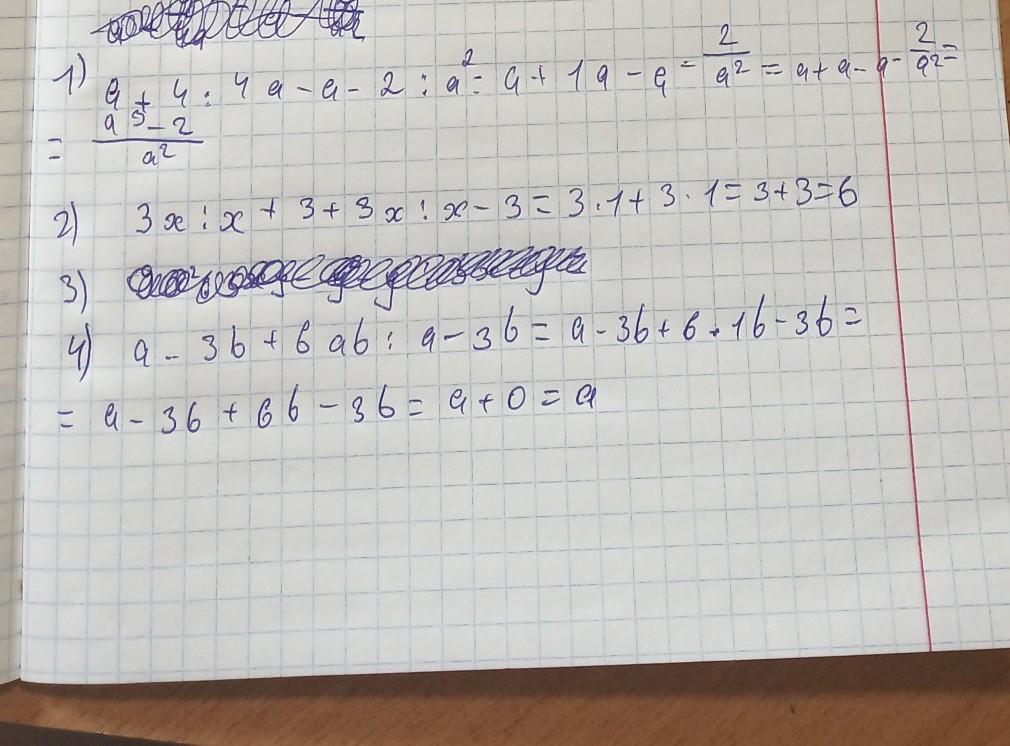 1) a + 4 : 4 a - a - 2 : a² = a + 1a - a - 2/a² = a + a - a - 2/a² =
= a³ - 2 / a²
2) 3x : x + 3 + 3x : x - 3 = 3 · 1 + 3 · 1 = 3 + 3 = 6
3)
4) a - 3b + 6 ab : a - 3b = a - 3b + 6 · 1b - 3b =
= a - 3b + 6b - 3b = a + 0 = a